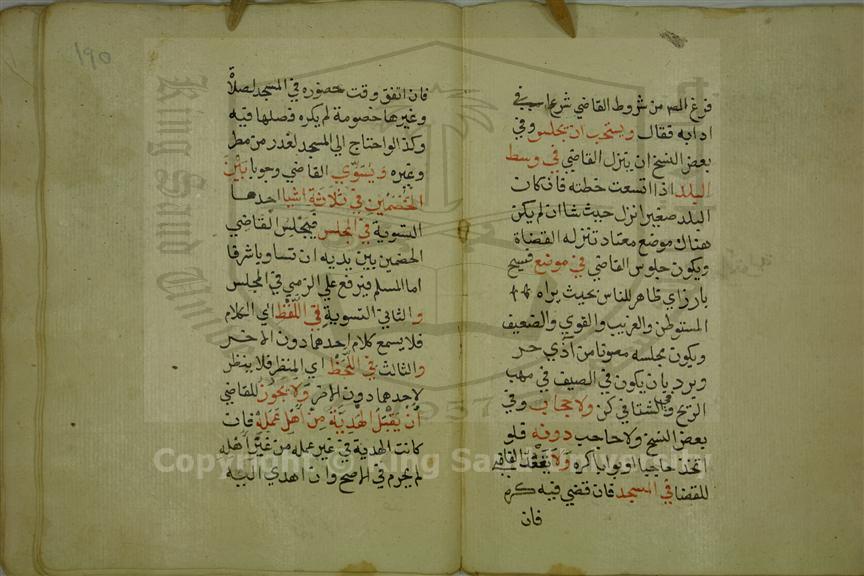 فرغ المص من شروط القاضي شرع في
ادابه فقال ويستحب ان يجلس وفي
بعض النسخ ان ينزل القاضي في وسط
البلد اذا اتسعت خطته فان كانت
البلد صغيرا نزل حيث شا ان لم يكن
هناك موضع معتاد تنزله القضاة
ويكون جلوس القاضي في موضع فسيح
بارز اي ظاهر للناس بحيث يراه
المستوطن والغريب والقوي والضعيف
ويكون مجلسه مصونا من اذي حر
وبرد بان يكون في الصيف في مهب
الريح وفي الشتا في كن ولا حجاب وفي
بعض النسخ ولا حاجب دونه فلو
اتخذ حاجبا او بوابا كره ولا يقعد القاضي
للقضا في المسجد فان قضي فيه كره
فان
190
فان اتفق وقت حضوره في المسجد لصلاة
وغيرها خصومة لم يكره فصلها فيه
وكذا لو احتاج الي المسجد لعذر من مطر
وغيره ويسوي القاضي وجوبا بين
الخصمين في ثلاثة اشيا احدها
التسوية في المجلس فيجلس القاضي
الخصمين بين يديه ان تساويا شرفا
اما المسلم فيرفع علي الذمي في المجلس
والثاني التسوية في اللفظ اي الكلام
فلا يسمع كلام احدهما دون الاخر
والثالث في اللحظ اي النظر فلا ينظر
لاحدهما دون الاخر ولا يجوز للقاضي
أن يقبل الهدية من أهل عمله فان
كانت الهدية في غير عمله من غير اهله
لم يحرم في الاصح وان اهدي اليه
Copyright © King Saud University
King Saud University
1957